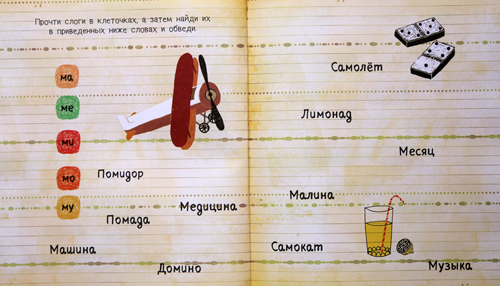 Прочти слоги в клеточках, а затем найди их
в приведенных ниже словах и обведи.
ма
ме
ми
мо
му
Помидор
Помада
Медицина
Машина
Домино
Самолёт
Лимонад
Месяц
Малина
Самокат
Музыка